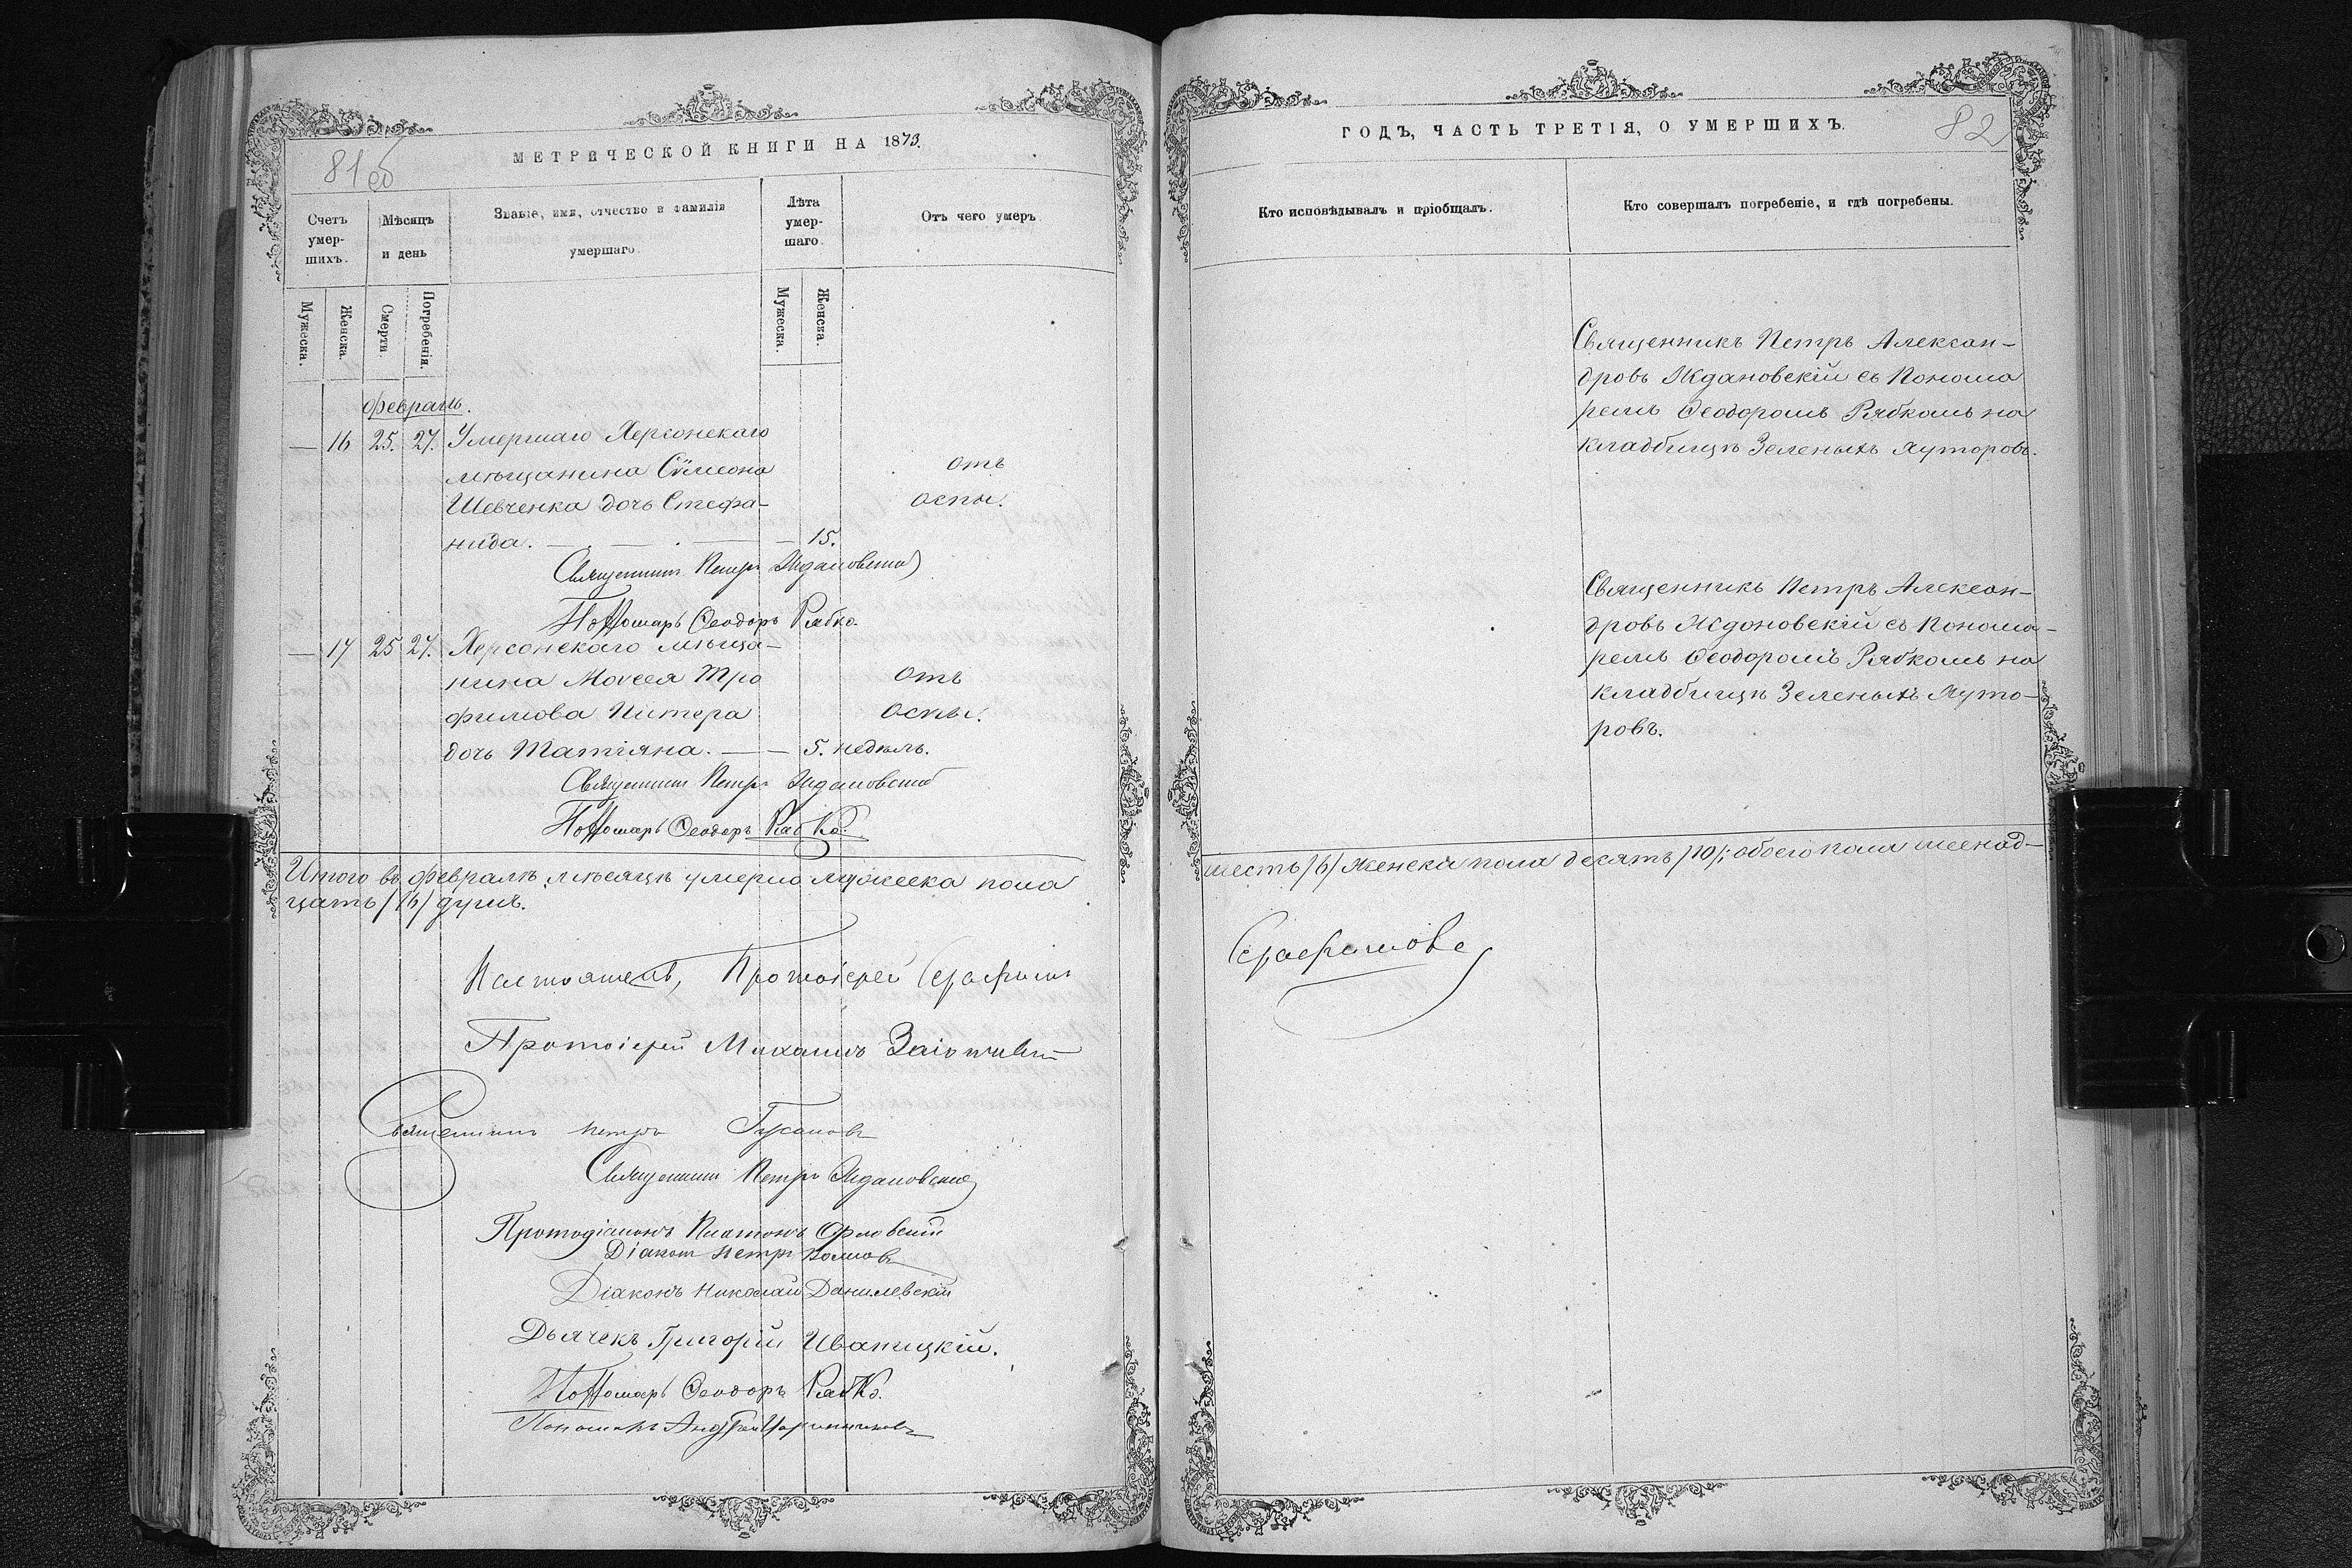 МЕТРИЧЕСКОЙ КНИГИ НА 1873.
81 об
Счетъ умер-шихъ.
Мѣсяцъ и день
Званіе, имя, отчество и фамилія умершаго.
Лѣта умер-шаго.
Отъ чего умеръ
Мужеска.
Женска.
Смерти.
Погребенія.
Мужеска.
Женска.
Февраль.
— 16 25. 27. Умершаго Херсонскаго
мѣщанина Сѵмеона
отъ
Шевченка дочь Стефа-
оспы.
нида. — . — . — — 15.
Священникъ Петръ Ждановскій
Пономарь Ѳеодоръ Рябко.
— 17 25 27. Херсонскаго мѣща-
нина Моѵсея Тро
отъ
фимова Питера
оспы.
дочь Татіяна. — — 5. недѣль.
Священникъ Петръ Ждановскій
Пономарь Ѳеодоръ Рябко.
Итого въ февралѣ мѣсяцѣ умерло мужеска пола
цать /16/ душъ.
Настоятель, Протоіерей Серафимъ
Протоіерей Михаилъ
Священникъ Петръ
Священникъ Петръ Ждановскій
Протодіаконъ Платонъ Орловскій
Діаконъ Петръ
Діаконъ Николай Данилевскій
Дьячекъ Григорій Иваницкій.
Пономарь Ѳеодоръ Рябко.
Пономарь Андрей
ГОДЪ, ЧАСТЬ ТРЕТІЯ, О УМЕРШИХЪ.
82
Кто исповѣдывалъ и пріобщалъ.
Кто совершалъ погребеніе, и гдѣ погребены.
Священникъ Петръ Алексан-
дровъ Ждановскій съ Понома
ремъ Ѳеодоромъ Рябкомъ на
кладбищѣ Зеленыхъ Хуторовъ.
Священникъ Петръ Алексан-
дровъ Ждановскій съ Понома-
ремъ Ѳеодоромъ Рябкомъ на
кладбищѣ Зеленыхъ Хуто-
ровъ.
шесть /6/ женска пола десять /10/; обоего пола шеснад-
Серафимовъ